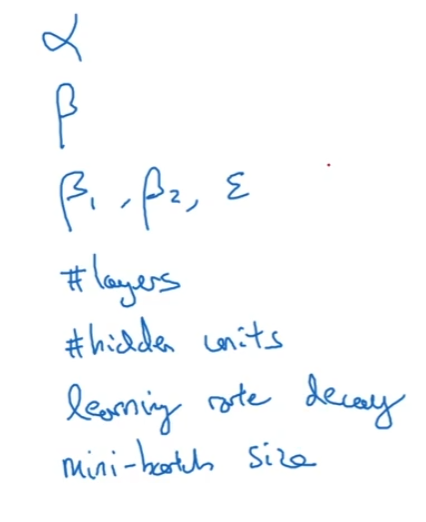 α
β
β₁, β₂, ε
#layers
#hidden units
learning rate decay
mini-batch size